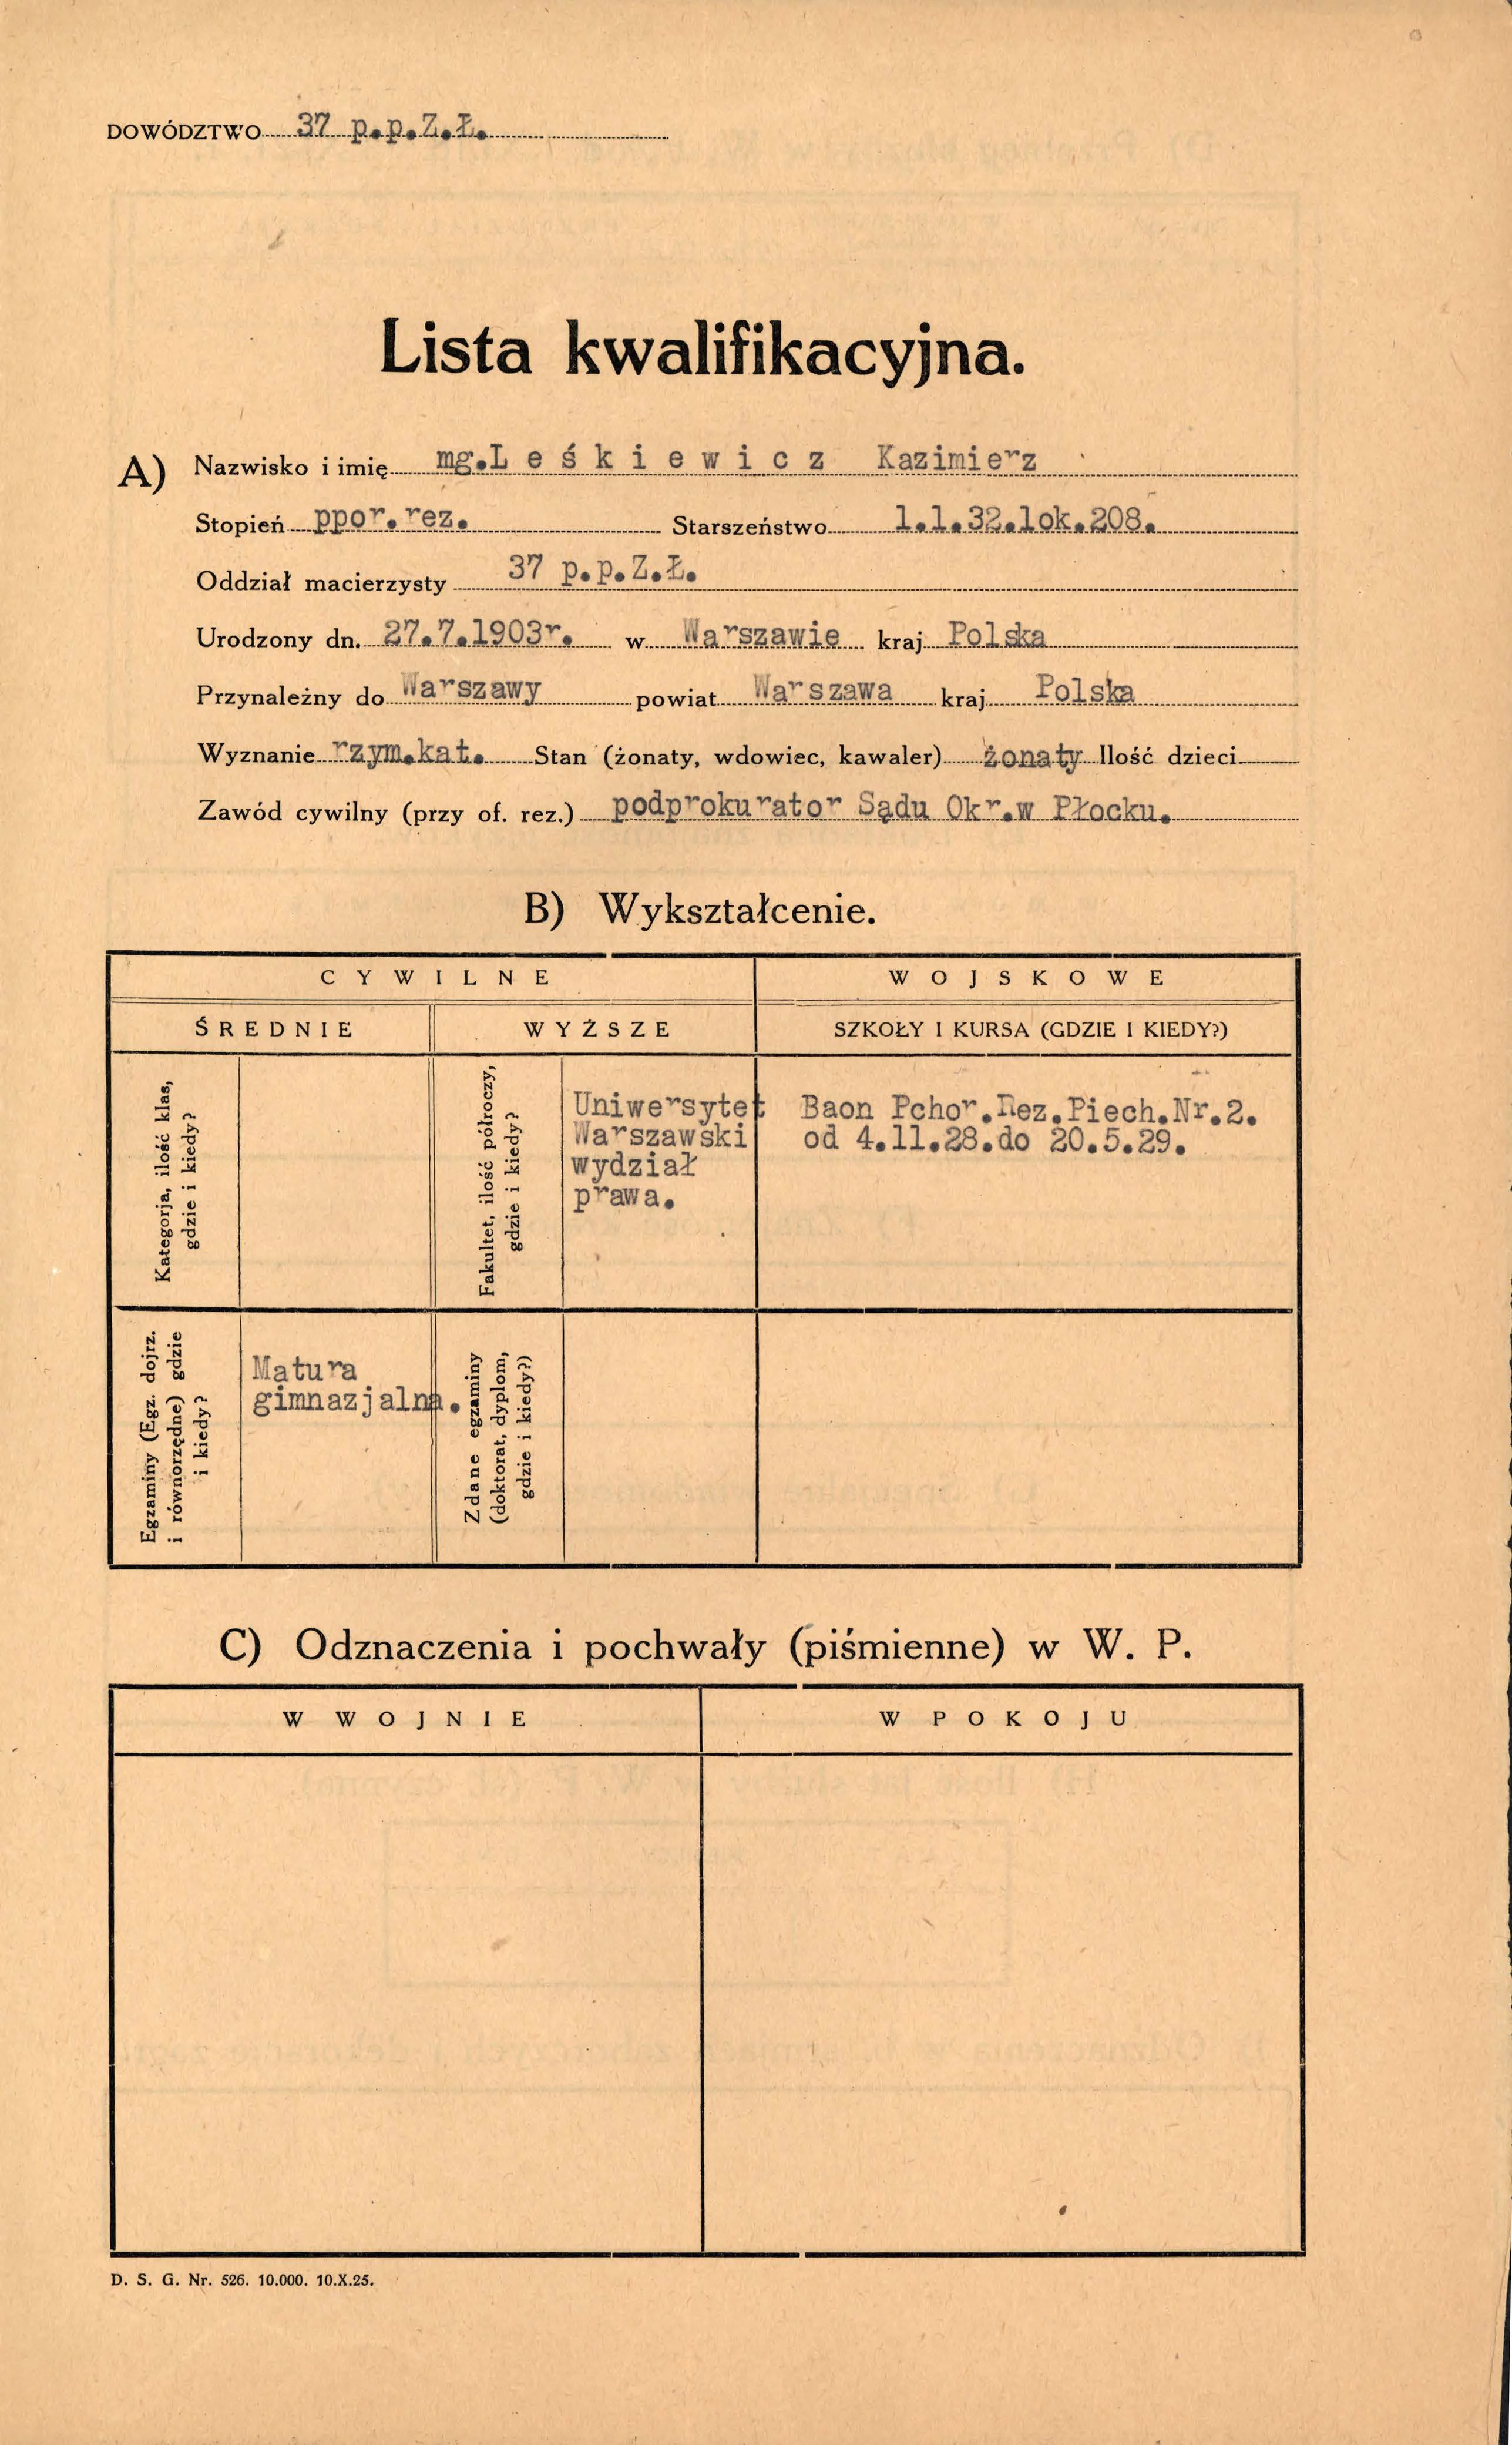 DOWÓDZTWO 37 p.p.Z.Ł.
Lista kwalifikacyjna.
A) Nazwisko i imię mg.L e ś k i e w i c z Kazimierz
Stopień ppor.rez. Starszeństwo 1.1.32.lok.208.
Oddział macierzysty 37 p.p.Z.Ł.
Urodzony dn. 27.7.1903r. w Warszawie kraj Polska
Przynależny do Warszawy powiat Warszawa kraj Polska
Wyznanie rzym.kat. Stan (żonaty, wdowiec, kawaler) żonaty Ilość dzieci
Zawód cywilny (przy of. rez.) podprokurator Sądu Okr.w Płocku.
B) Wykształcenie.
CYWILNE
WOJSKOWE
ŚREDNIE
WYŻSZE
SZKOŁY I KURSA (GDZIE I KIEDY?)
Kategorja, ilość klas,
gdzie i kiedy?
Fakultet, ilość półroczy,
gdzie i kiedy?
Uniwersytet
Warszawski
wydział
prawa.
Baon Pchor.Rez.Piech.Nr.2.
od 4.11.28.do 20.5.29.
Egzaminy (Egz. dojrz.
i równorzędne) gdzie
i kiedy?
Matura
gimnazjalna.
Zdane egzaminy
(doktorat, dyplom,
gdzie i kiedy?)
C) Odznaczenia i pochwały (piśmienne) w W. P.
W WOJNIE
W POKOJU
D. S. G. Nr. 526. 10.000. 10.X.25.